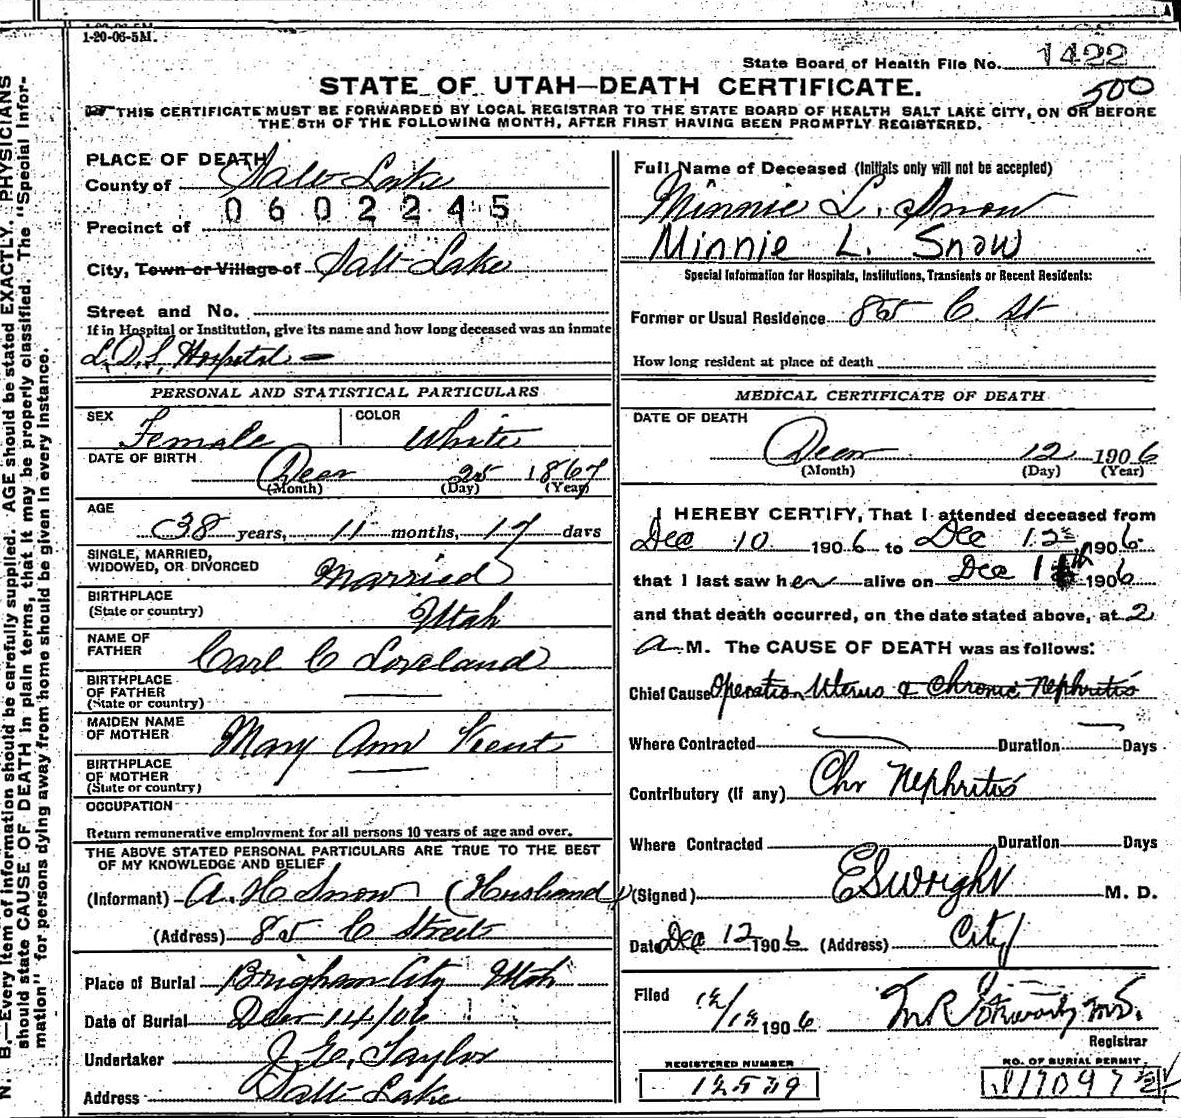 1-20-06-5M.
State Board of Health File No. 1422
STATE OF UTAH—DEATH CERTIFICATE.
500
THIS CERTIFICATE MUST BE FORWARDED BY LOCAL REGISTRAR TO THE STATE BOARD OF HEALTH SALT LAKE CITY, ON OR BEFORE
THE 5TH OF THE FOLLOWING MONTH, AFTER FIRST HAVING BEEN PROMPTLY REGISTERED.
PLACE OF DEATH
County of Salt Lake
0602245
Precinct of
City, Town or Village of Salt Lake
Street and No.
If in Hospital or Institution, give its name and how long deceased was an inmate
L.D.S. Hospital —
PERSONAL AND STATISTICAL PARTICULARS
SEX Female COLOR White
DATE OF BIRTH Decr 25 1867
(Month) (Day) (Year)
AGE 38 years, 11 months, 17 days
SINGLE, MARRIED,
WIDOWED, OR DIVORCED Married
BIRTHPLACE
(State or country) Utah
NAME OF
FATHER Carl C Loveland
BIRTHPLACE
OF FATHER
(State or country)
MAIDEN NAME
OF MOTHER Mary Ann
BIRTHPLACE
OF MOTHER
(State or country)
OCCUPATION
Return remunerative employment for all persons 10 years of age and over.
THE ABOVE STATED PERSONAL PARTICULARS ARE TRUE TO THE BEST
OF MY KNOWLEDGE AND BELIEF
(Informant) A. H Snow (Husband)
(Address) 85 C Street
Place of Burial Brigham City Utah
Date of Burial Decr 14/06
Undertaker Taylor
Address Salt Lake
Full Name of Deceased (Initials only will not be accepted)
Minnie L. Snow
Minnie L. Snow
Special Information for Hospitals, Institutions, Transients or Recent Residents:
Former or Usual Residence 85 C. St
How long resident at place of death
MEDICAL CERTIFICATE OF DEATH
DATE OF DEATH
Decr 12 1906
(Month) (Day) (Year)
I HEREBY CERTIFY, That I attended deceased from
Dec 10 1906 to Dec 12 1906
that I last saw her alive on Dec 11th 1906
and that death occurred, on the date stated above, at 2
a M. The CAUSE OF DEATH was as follows:
Chief Cause Operation Uterus & Chronic Nephritis
Where Contracted Duration Days
Contributory (if any) Chr Nephritis
Where Contracted Duration Days
(Signed) E S Wright M. D.
Date Dec 12 1906 (Address) City
Filed 12/13 1906
Registrar
REGISTERED NUMBER
12539
NO. OF BURIAL PERMIT
17097
N. B.—Every item of information should be carefully supplied. AGE should be stated EXACTLY. PHYSICIANS
should state CAUSE OF DEATH in plain terms, that it may be properly classified. The "Special Infor-
mation" for persons dying away from home should be given in every instance.